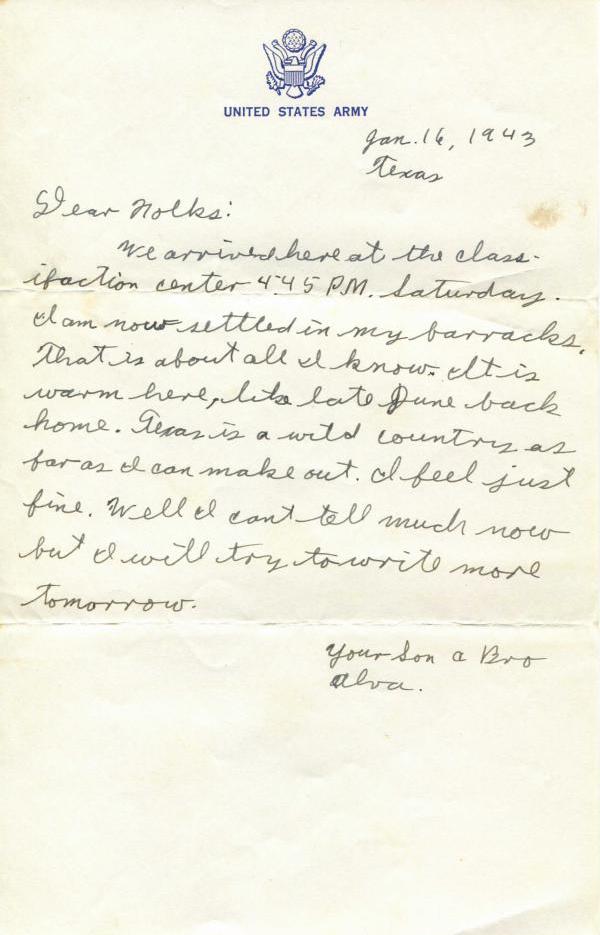 UNITED STATES ARMY
Jan. 16, 1943
Texas
Dear Folks:
We arrived here at the class-
ifaction center 4:45 P.M. Saturday.
I am now settled in my barracks.
That is about all I know. It is
warm here, like late June back
home. Texas is a wild country as
far as I can make out. I feel just
fine. Well I cant tell much now
but I will try to write more
tomorrow.
Your Son a Bro
Alva.